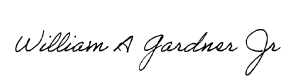 William A Gardner Jr